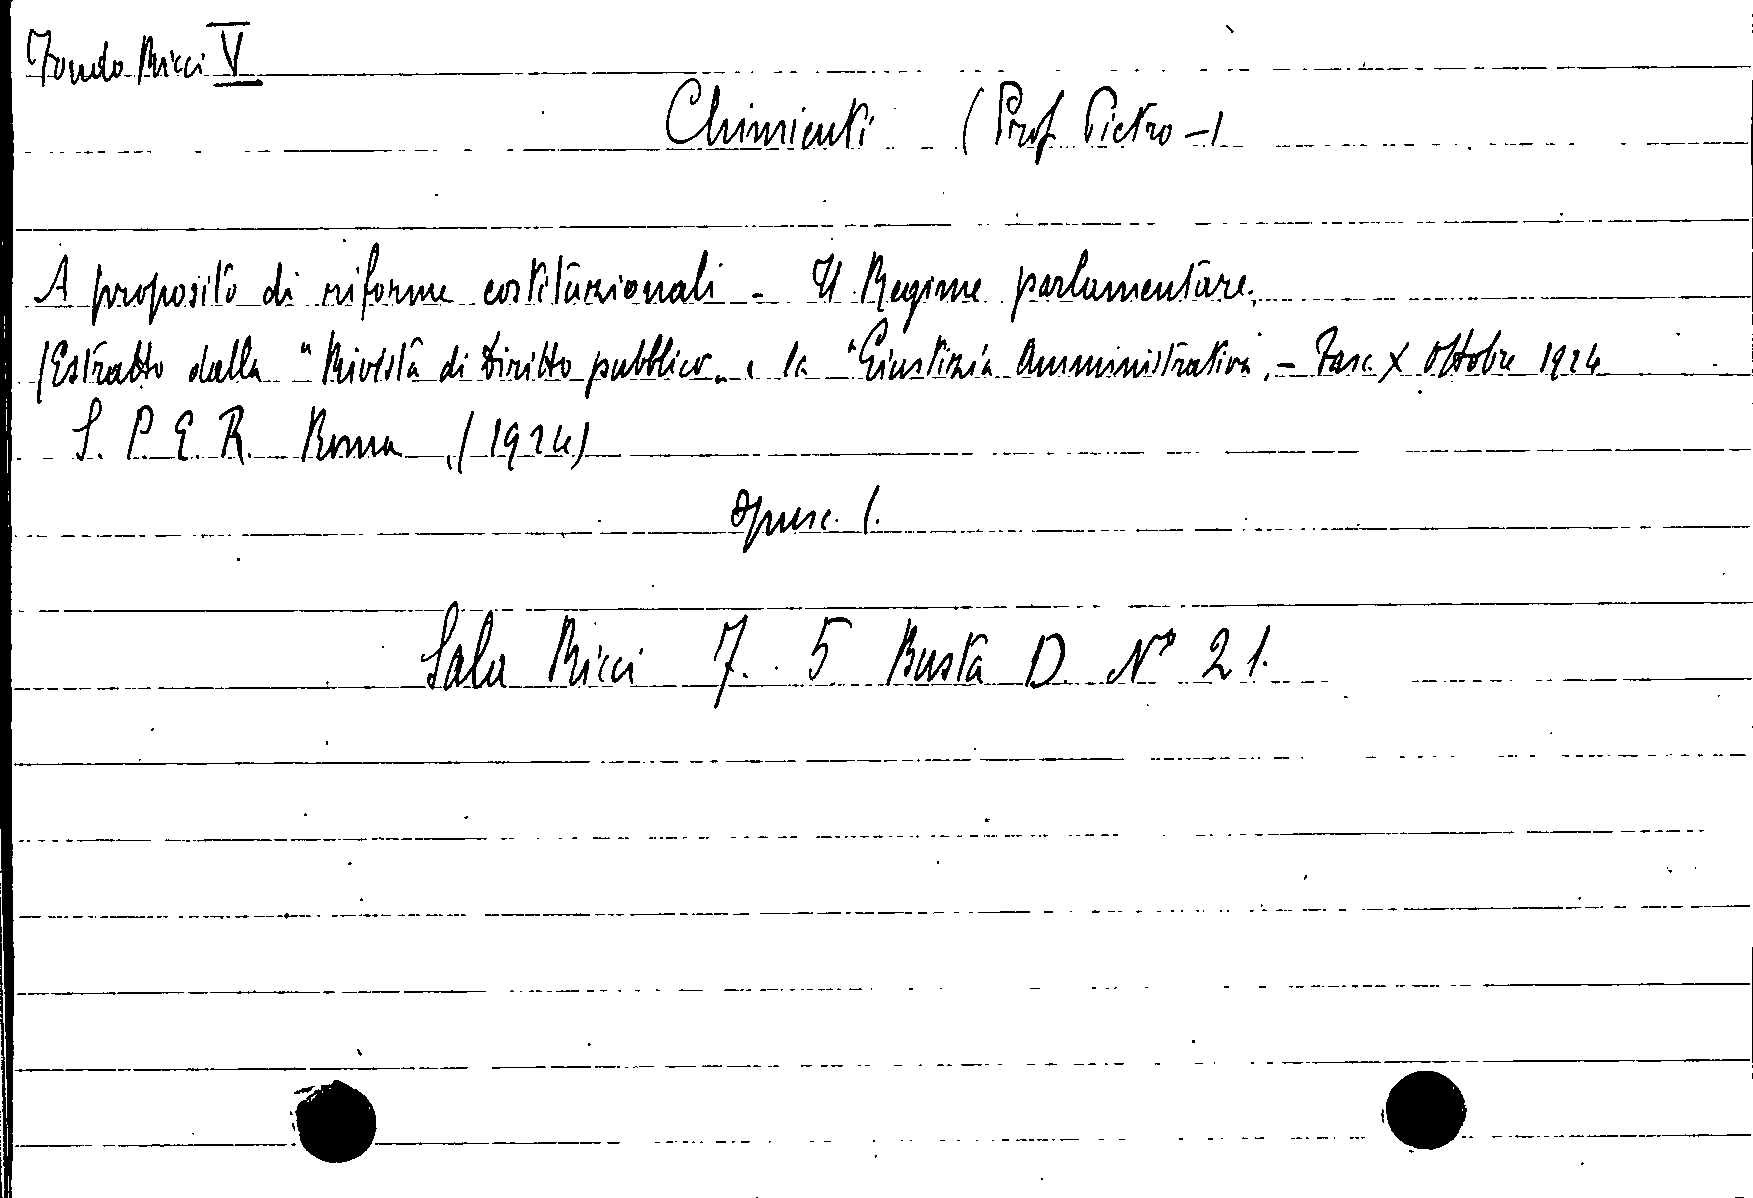 Fondo Ricci V
Chimienti (Prof. Pietro -)
A proposito di riforme costituzionali - Il Regime parlamentare.
(Estratto dalla "Rivista di Diritto pubblico" e la "Giustizia Amministrativa" - Fasc X Ottobre 1924
S. P. E. R. Roma (1924)
Opusc. 1.
Sala Ricci 7. 5 Busta D. N° 21.